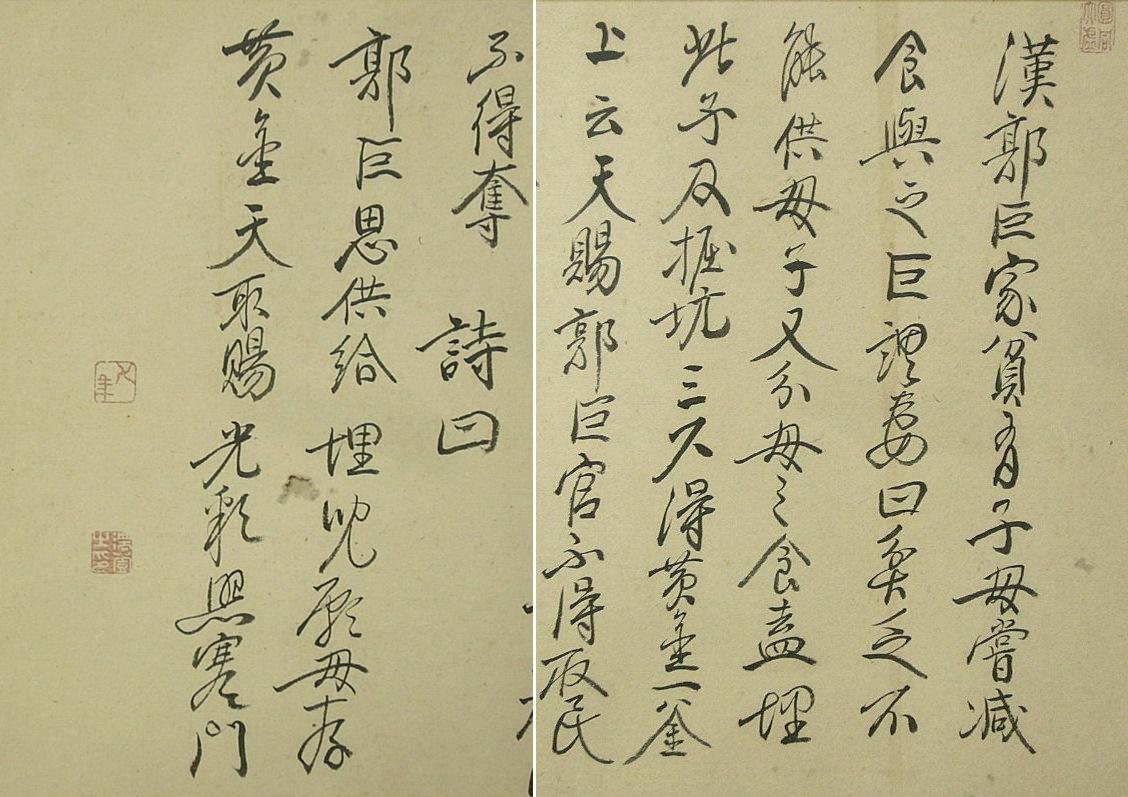 漢郭巨家貧有子母嘗減
食與之巨謂妻曰貧乏不
能供母子又分母之食盍埋
此子及掘坑三尺得黃金一釜
上云天賜郭巨官不得取民
不得奪 詩曰
郭巨思供給 埋兒願母存
黃金天所賜 光彩照寒門